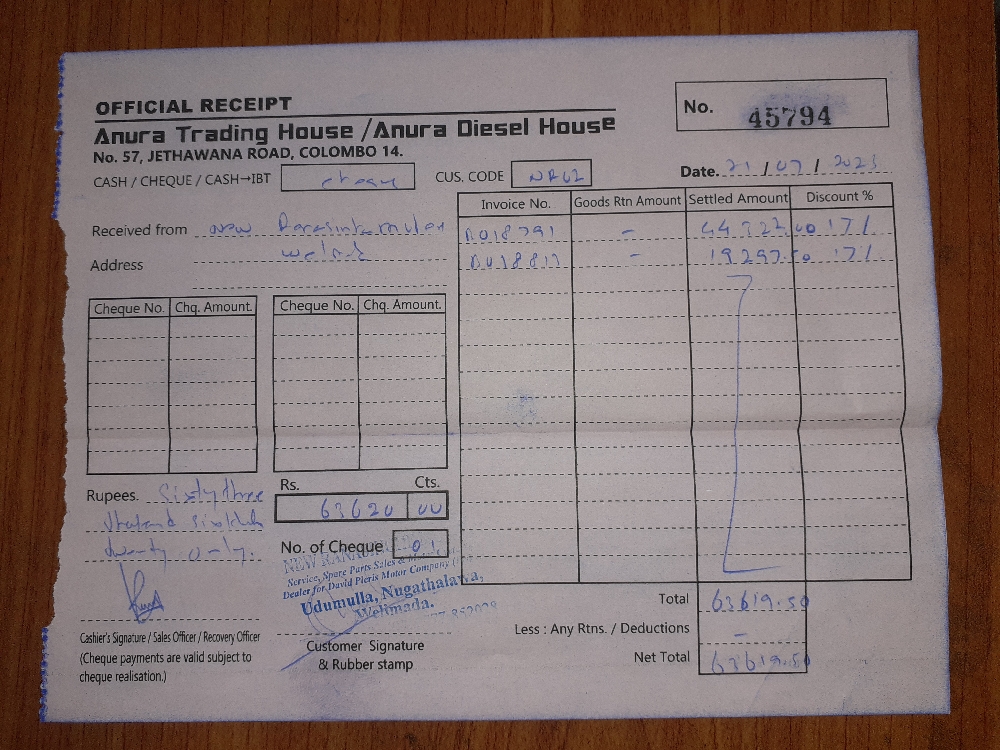 OFFICIAL RECEIPT
Anura Trading House / Anura Diesel House
No. 57, JETHAWANA ROAD, COLOMBO 14.
No. 45794
CASH / CHEQUE / CASH→IBT
CUS. CODE
Date. 21 / 07 /
Received from New
Address
Invoice No. Goods Rtn Amount Settled Amount Discount %
- 44 322.00 17%
- 19 297.50 17%
Cheque No. Chq. Amount. Cheque No. Chq. Amount.
Rupees. Sixty three
twenty only.
Rs. Cts.
63620 00
No. of Cheque 01
Service, Spare Parts Sales &
Dealer for David Pieris Motor Company
Udumulla, Nugathalawa,
Welimada.
Customer Signature
& Rubber stamp
Cashier's Signature / Sales Officer / Recovery Officer
(Cheque payments are valid subject to
cheque realisation.)
Total 63619.50
Less : Any Rtns. / Deductions -
Net Total 63619.50